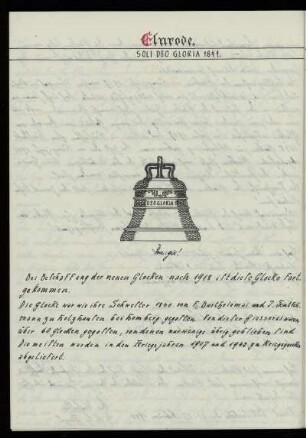 Elnrode.
SOLI DEO GLORIA 1811.
DEO GLORIA 18
Bei Beschaffung der neuen Glocken nach 1918 ist diese Glocke fort-
gekommen.
Die Glocke war wie ihre Schwester von und J.
mann zu Holzhausen bei Homberg gegossen. Von dieser sind
über 60 Glocken gegossen, von denen nur wenige übrig geblieben sind
Die meisten wurden in den Kriegsjahren 1917 und 1942 zu Kriegszwecken
abgeliefert.